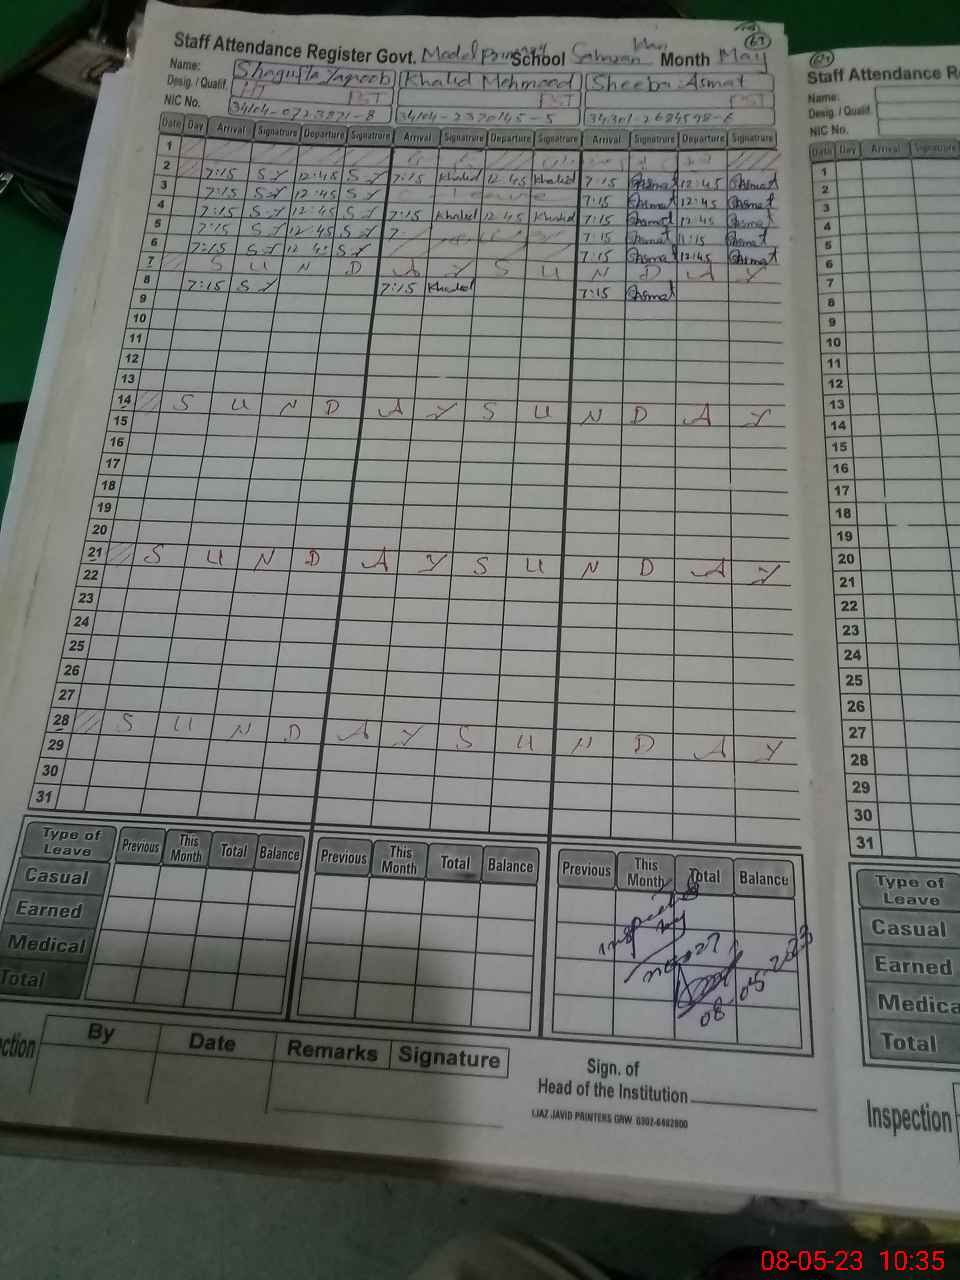 67
Staff Attendance Register Govt. Model Primary School Month May
Name: Shagufta Yaqoob Khalid Mehmood Sheeba Asmat
Desig. / Qualif. PST PST PST
NIC No. 34104-2370145-5
Date Day Arrival Signature Departure Signature Arrival Signature Departure Signature Arrival Signature Departure Signature
1
2 7:15 S Y 12:45 S Y 7:15 Khalid 12:45 Khalid 7:15 Asmat 12:45 Asmat
3 7:15 S Y 12:45 S Y Leave 7:15 Asmat 12:45 Asmat
4 7:15 S Y 12:45 S Y 7:15 Khalid 12:45 Khalid 7:15 Asmat 12:45 Asmat
5 7:15 S Y 12:45 S Y 7:15 Asmat 11:15 Asmat
6 7:15 S Y 12:45 S Y 7:15 Asmat 12:45 Asmat
7 S U N D A Y S U N D A Y
8 7:15 S Y 7:15 Khalid 7:15 Asmat
9
10
11
12
13
14 S U N D A Y S U N D A Y
15
16
17
18
19
20
21 S U N D A Y S U N D A Y
22
23
24
25
26
27
28 S U N D A Y S U N D A Y
29
30
31
Type of Leave Previous This Month Total Balance Previous This Month Total Balance Previous This Month Total Balance
Casual
Earned
Medical
Total
Inspected
by
08-05-2023
ction By Date Remarks Signature
Sign. of
Head of the Institution
IJAZ JAVID PRINTERS GRW. 0302-6492800
Staff Attendance R
Name:
Desig. / Qualif.
NIC No.
Date Day Arrival Signature
1
2
3
4
5
6
7
8
9
10
11
12
13
14
15
16
17
18
19
20
21
22
23
24
25
26
27
28
29
30
31
Type of Leave
Casual
Earned
Medica
Total
Inspection
08-05-23 10:35